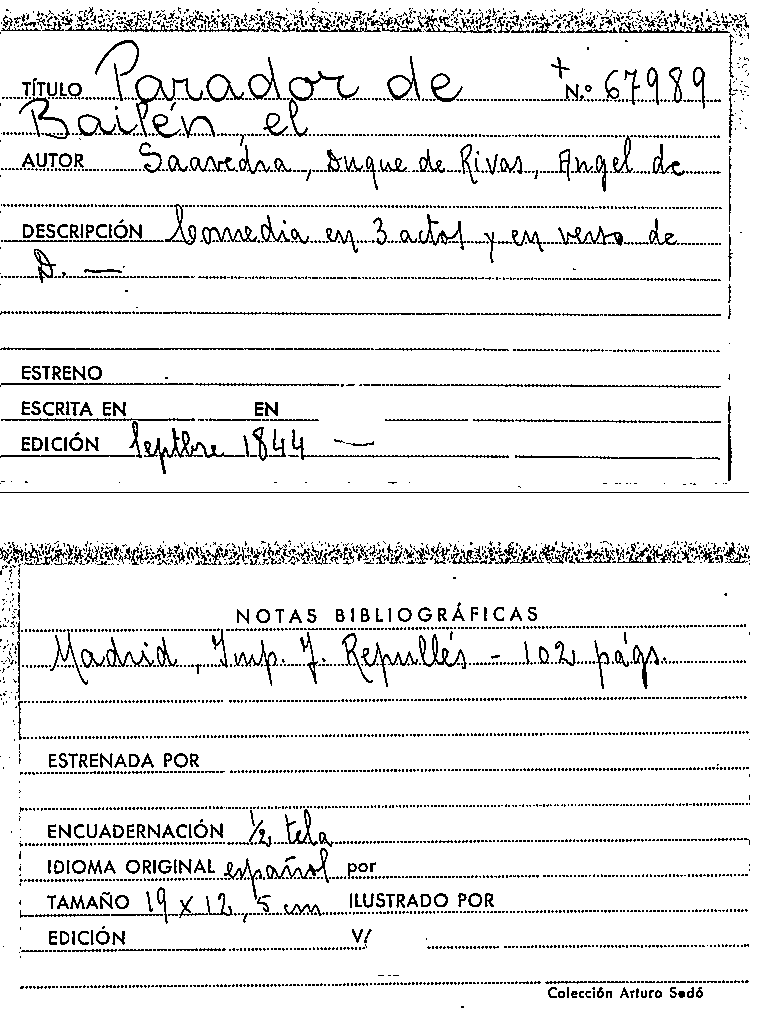 TÍTULO Parador de + N.º 67989
Bailén, el
AUTOR Saavedra, Duque de Rivas, Angel de
DESCRIPCIÓN Comedia en 3 actos y en verso de
D. —
ESTRENO
ESCRITA EN EN
EDICIÓN Septbre 1844 —
NOTAS BIBLIOGRÁFICAS
Madrid, Imp. J. Repullés - 102 págs.
ESTRENADA POR
ENCUADERNACIÓN ½ tela
IDIOMA ORIGINAL español por
TAMAÑO 19 x 12,5 cm ILUSTRADO POR
EDICIÓN V/
Colección Arturo Sedó